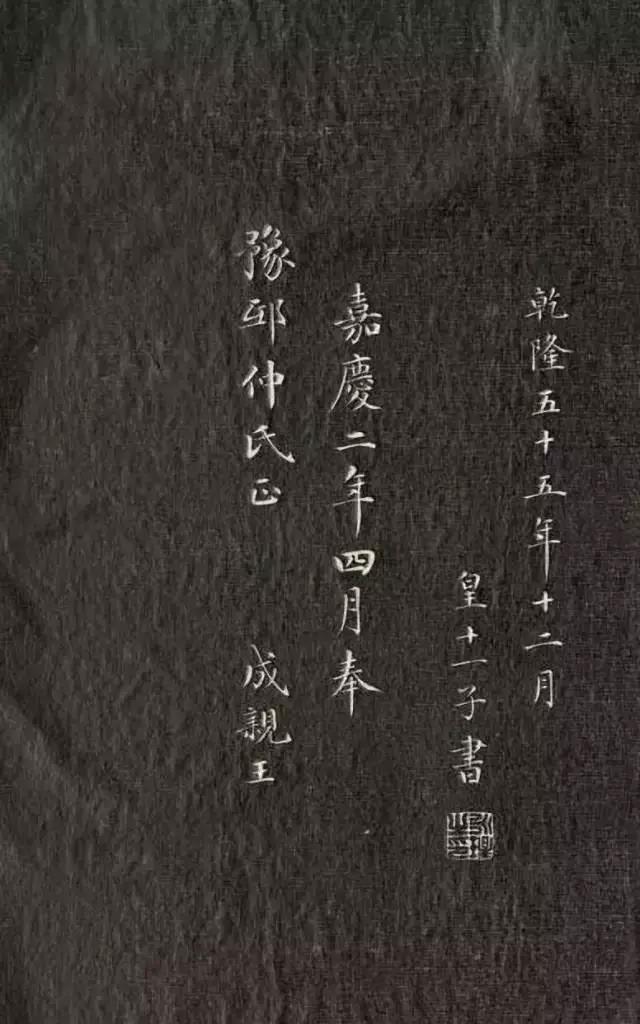 乾隆五十五年十二月
皇十一子書
永瑆之印
嘉慶二年四月奉
豫邸仲氏正 成親王